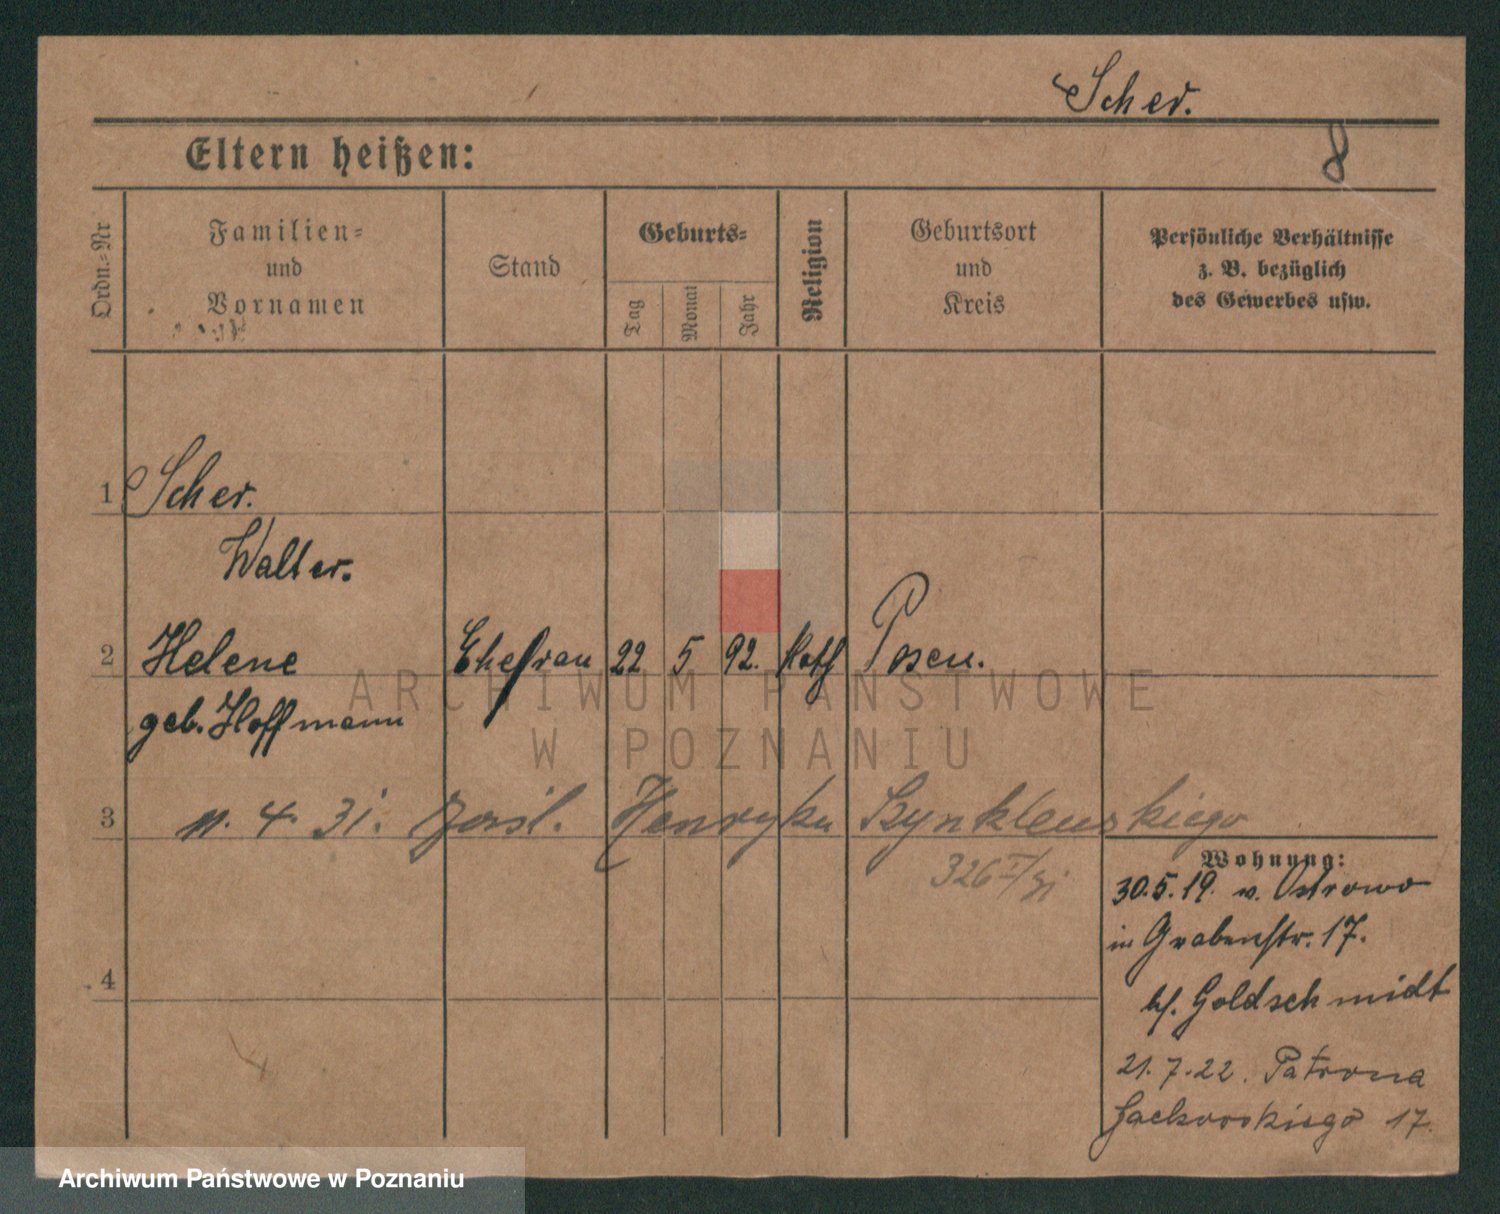 Scher.
Eltern heißen:
8
Ordn.=Nr
Familien=
und
Vornamen
Stand
Geburts=
Tag
Monat
Jahr
Religion
Geburtsort
und
Kreis
Persönliche Verhältnisse
z. B. bezüglich
des Gewerbes usw.
1 Scher.
Walter.
2 Helene Ehefrau 22 5 92. Kath Posen.
geb. Hoffmann
ARCHIWUM PAŃSTWOWE
W POZNANIU
3 4. 31. Henryka
326
Wohnung:
30.5.19. v. Ostrowo
in Grabenstr. 17.
b/. Goldschmidt
4
21.7.22. Patrona
Jackowskiego 17.
Archiwum Państwowe w Poznaniu